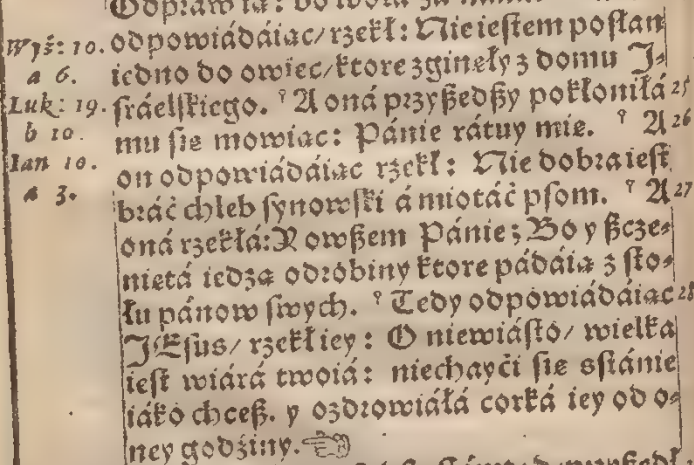 Odpraw ią: bo woła za nami.
odpowiádáiąc/ rzekł: Nie iestem posłan
iedno do owiec/ ktore zginęły z domu J-
sráelskiego. A oná przyszedszy pokłoniłá 25
mu się mowiąc: Pánie rátuy mię. A 26
on odpowiádáiąc rzekł: Nie dobra iest
bráć chleb synowski á miotáć psom. A 27
oná rzekłá: Y owszem Pánie; Bo y szcze-
niętá iedzą odrobiny ktore pádáią z sto-
łu pánow swych. Tedy odpowiádáiąc 28
JEsus/ rzekł iey: O niewiásto/ wielka
iest wiárá twoiá: niechayći się sstánie
iáko chcesz. y ozdrowiáłá corká iey od o-
ney godźiny. ☜
Wyż: 10.
a 6.
Luk: 19.
b 10.
Ian 10.
a 3.